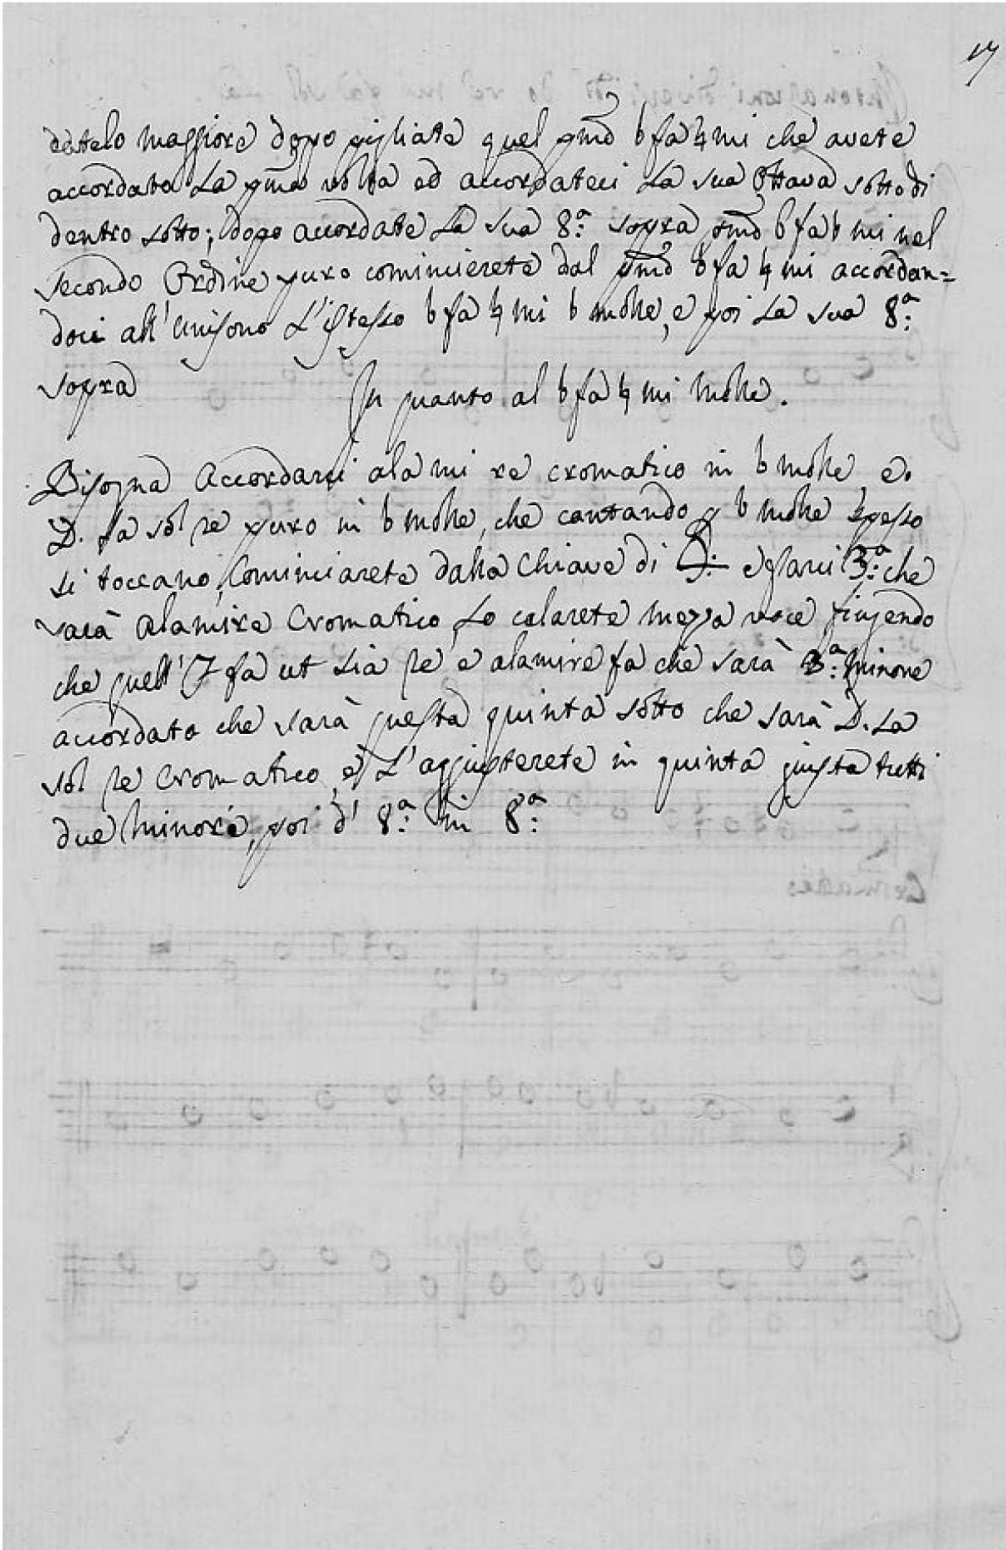 17
datelo maggiore dopo pigliate quel pmo b fa ♮ mi che avete
accordato La pma volta ed accordateci La sua Ottava sotto di
dentro sotto; dopo accordate La sua 8.a sopra pmo b fa b mi nel
secondo Ordine puro comincierete dal pmo b fa ♮ mi accordan=
doci all'unisono L'istesso b fa ♮ mi b molle, e poi La sua 8.a
sopra
In quanto al b fa ♮ mi molle.
Bisogna Accordarci ala mi re cromatico in b molle, e.
D. la sol re puro in b molle, che cantando p b molle spesso
si toccano, Cominciarete dalla Chiave di e farci 3.a che
sarà Alamire Cromatico Lo calarete mezza voce fingendo
che quell' fa ut sia re e alamire fa che sarà 3.a minore
accordato che sarà questa quinta sotto che sarà D. La
sol re Cromatico, e L'aggiusterete in quinta giusta tutti
due minore, poi d' 8.a in 8.a